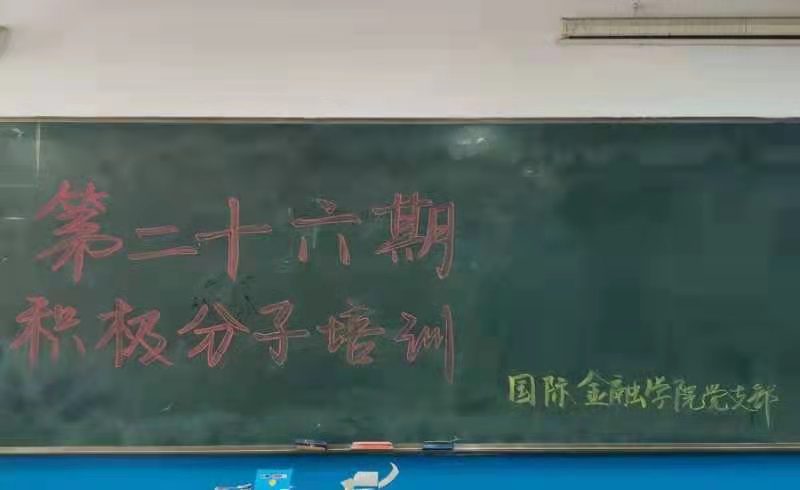 第二十六期
积极分子培训
国际金融学院党支部